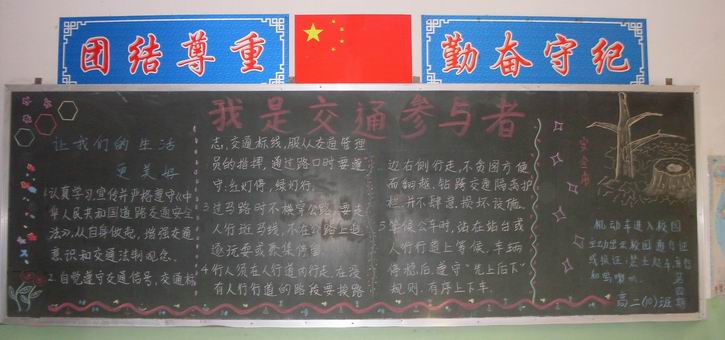 团结尊重
勤奋守纪
我是交通参与者
让我们的生活
更美好
1.认真学习,宣传并严格遵守《中
华人民共和国道路交通安全
法》,从自身做起,增强交通
意识和交通法制观念。
2.自觉遵守交通信号,交通标
志,交通标线,服从交通管理
员的指挥,通过路口时要遵
守:红灯停,绿灯行。
3.过马路时不横穿公路,要走
人行斑马线,不在公路上追
逐玩耍或聚集停留。
4.行人须在人行道内行走,在没
有人行道的路段要挨路
边右侧行走,不贪图方便
而翻越、钻跨交通隔离护
栏,并不肆意损坏设施。
5.等候公车时,站在站台或
人行行道上等候,车辆
停稳后,遵守“先上后下”
规则,有序上下车。
机动车进入校园
高二(10)班
第四期